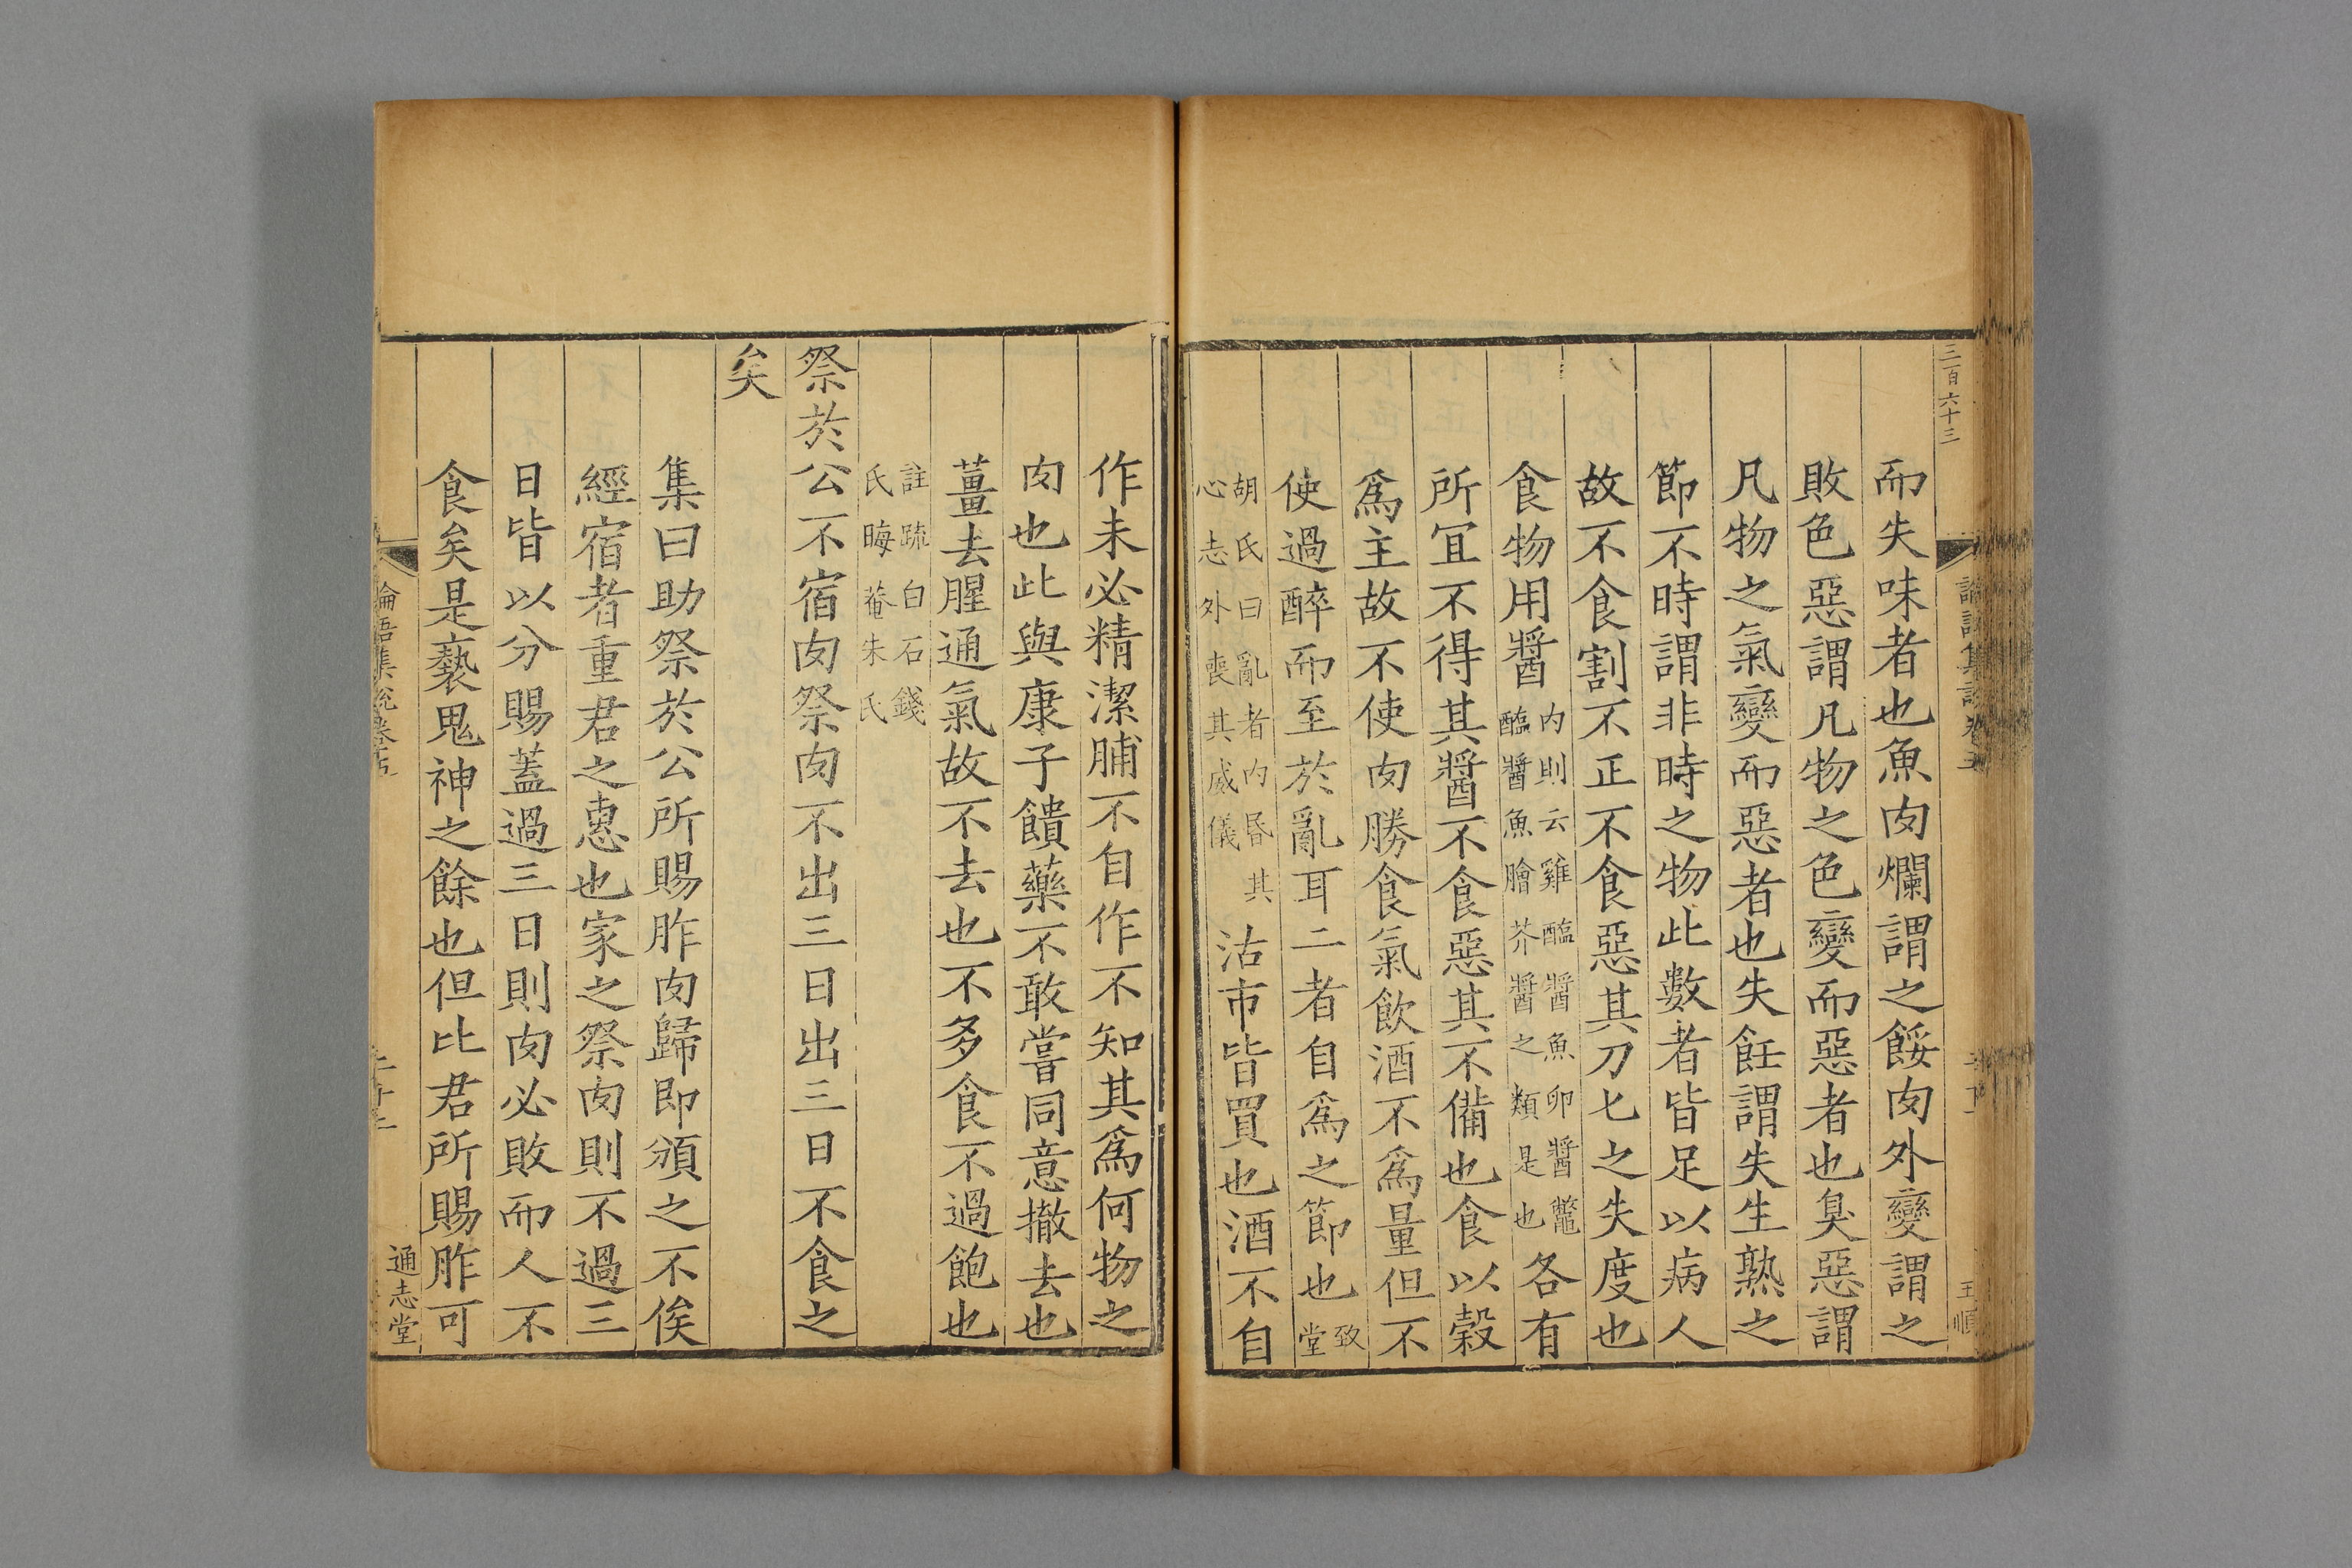 三百六十三
而失味者也魚肉爛謂之餒肉外變謂之
敗色惡謂凡物之色變而惡者也臭惡謂
凡物之氣變而惡者也失飪謂失生熟之
節不時謂非時之物此數者皆足以病人
故不食割不正不食惡其刀匕之失度也
食物用醬内則云雞醢醬魚卵醬鼈醢醬魚膾芥醬之類是也各有
所冝不得其醬不食惡其不備也食以糓
爲主故不使肉勝食氣飲酒不爲量但不
使過醉而至於亂耳二者自爲之節也致堂
胡氏曰亂者内昏其心志外喪其威儀沽市皆買也酒不自
王順
作未必精潔脯不自作不知其爲何物之
肉也此與康子饋藥不敢嘗同意撤去也
薑去腥通氣故不去也不多食不過飽也
註疏白石錢氏晦菴朱氏
祭於公不宿肉祭肉不出三日出三日不食之
矣
集曰助祭於公所賜胙肉歸即頒之不俟
經宿者重君之惠也家之祭肉則不過三
日皆以分賜蓋過三日則肉必敗而人不
食矣是褻鬼神之餘也但比君所賜胙可
論語集說卷五
通志堂